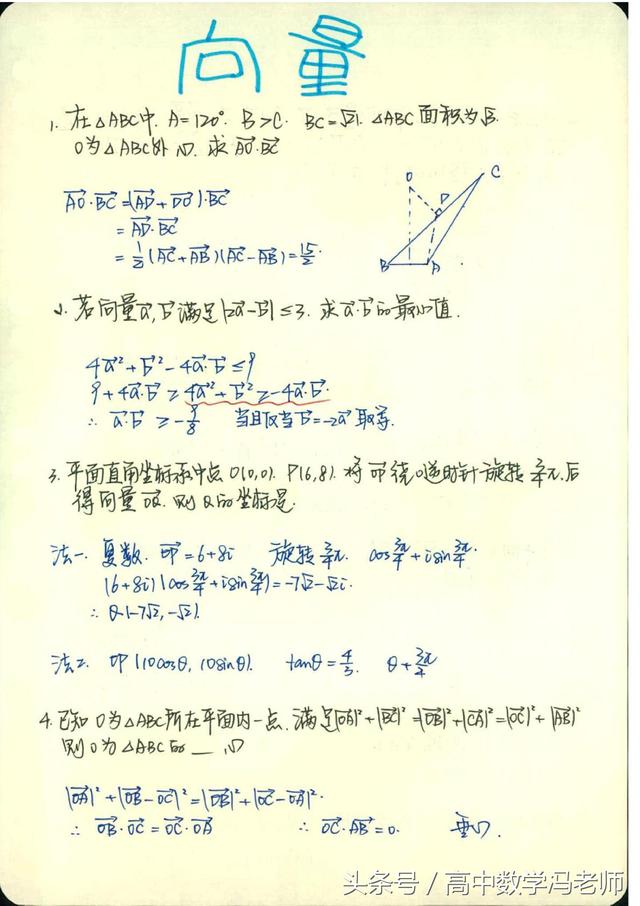 向量
1. 在△ABC中. A=120°. B>C. BC=√21. △ABC面积为√3.
O为△ABC外心. 求AO·BC
AO·BC=(AD+DO)·BC
=AD·BC
=1/2(AC+AB)(AC-AB)=15/2.
O
C
D
B
A
2. 若向量a,b满足|2a-b|≤3. 求a·b的最小值.
4a²+b²-4a·b≤9
9+4a·b≥4a²+b²≥-4a·b.
∴ a·b ≥-9/8 当且仅当b=-2a取等.
3. 平面直角坐标系中点O(0,0). P(6,8). 将OP绕O逆时针旋转3/4π后
得向量OQ. 则Q的坐标是.
法一. 复数. OP=6+8i 旋转3/4π. cos3π/4+isin3π/4.
(6+8i)(cos3π/4+isin3π/4)=-7√2-√2i.
∴ Q(-7√2,-√2).
法2. OP(10cosθ,10sinθ). tanθ=4/3. θ+3π/4
4. 已知O为△ABC所在平面内一点. 满足|OA|²+|BC|²=|OB|²+|CA|²=|OC|²+|AB|²
则O为△ABC的__心
|OA|²+|OB-OC|²=|OB|²+|OC-OA|².
∴ OB·OC=OC·OA ∴ OC·AB=0. 垂心.
头条号 / 高中数学冯老师